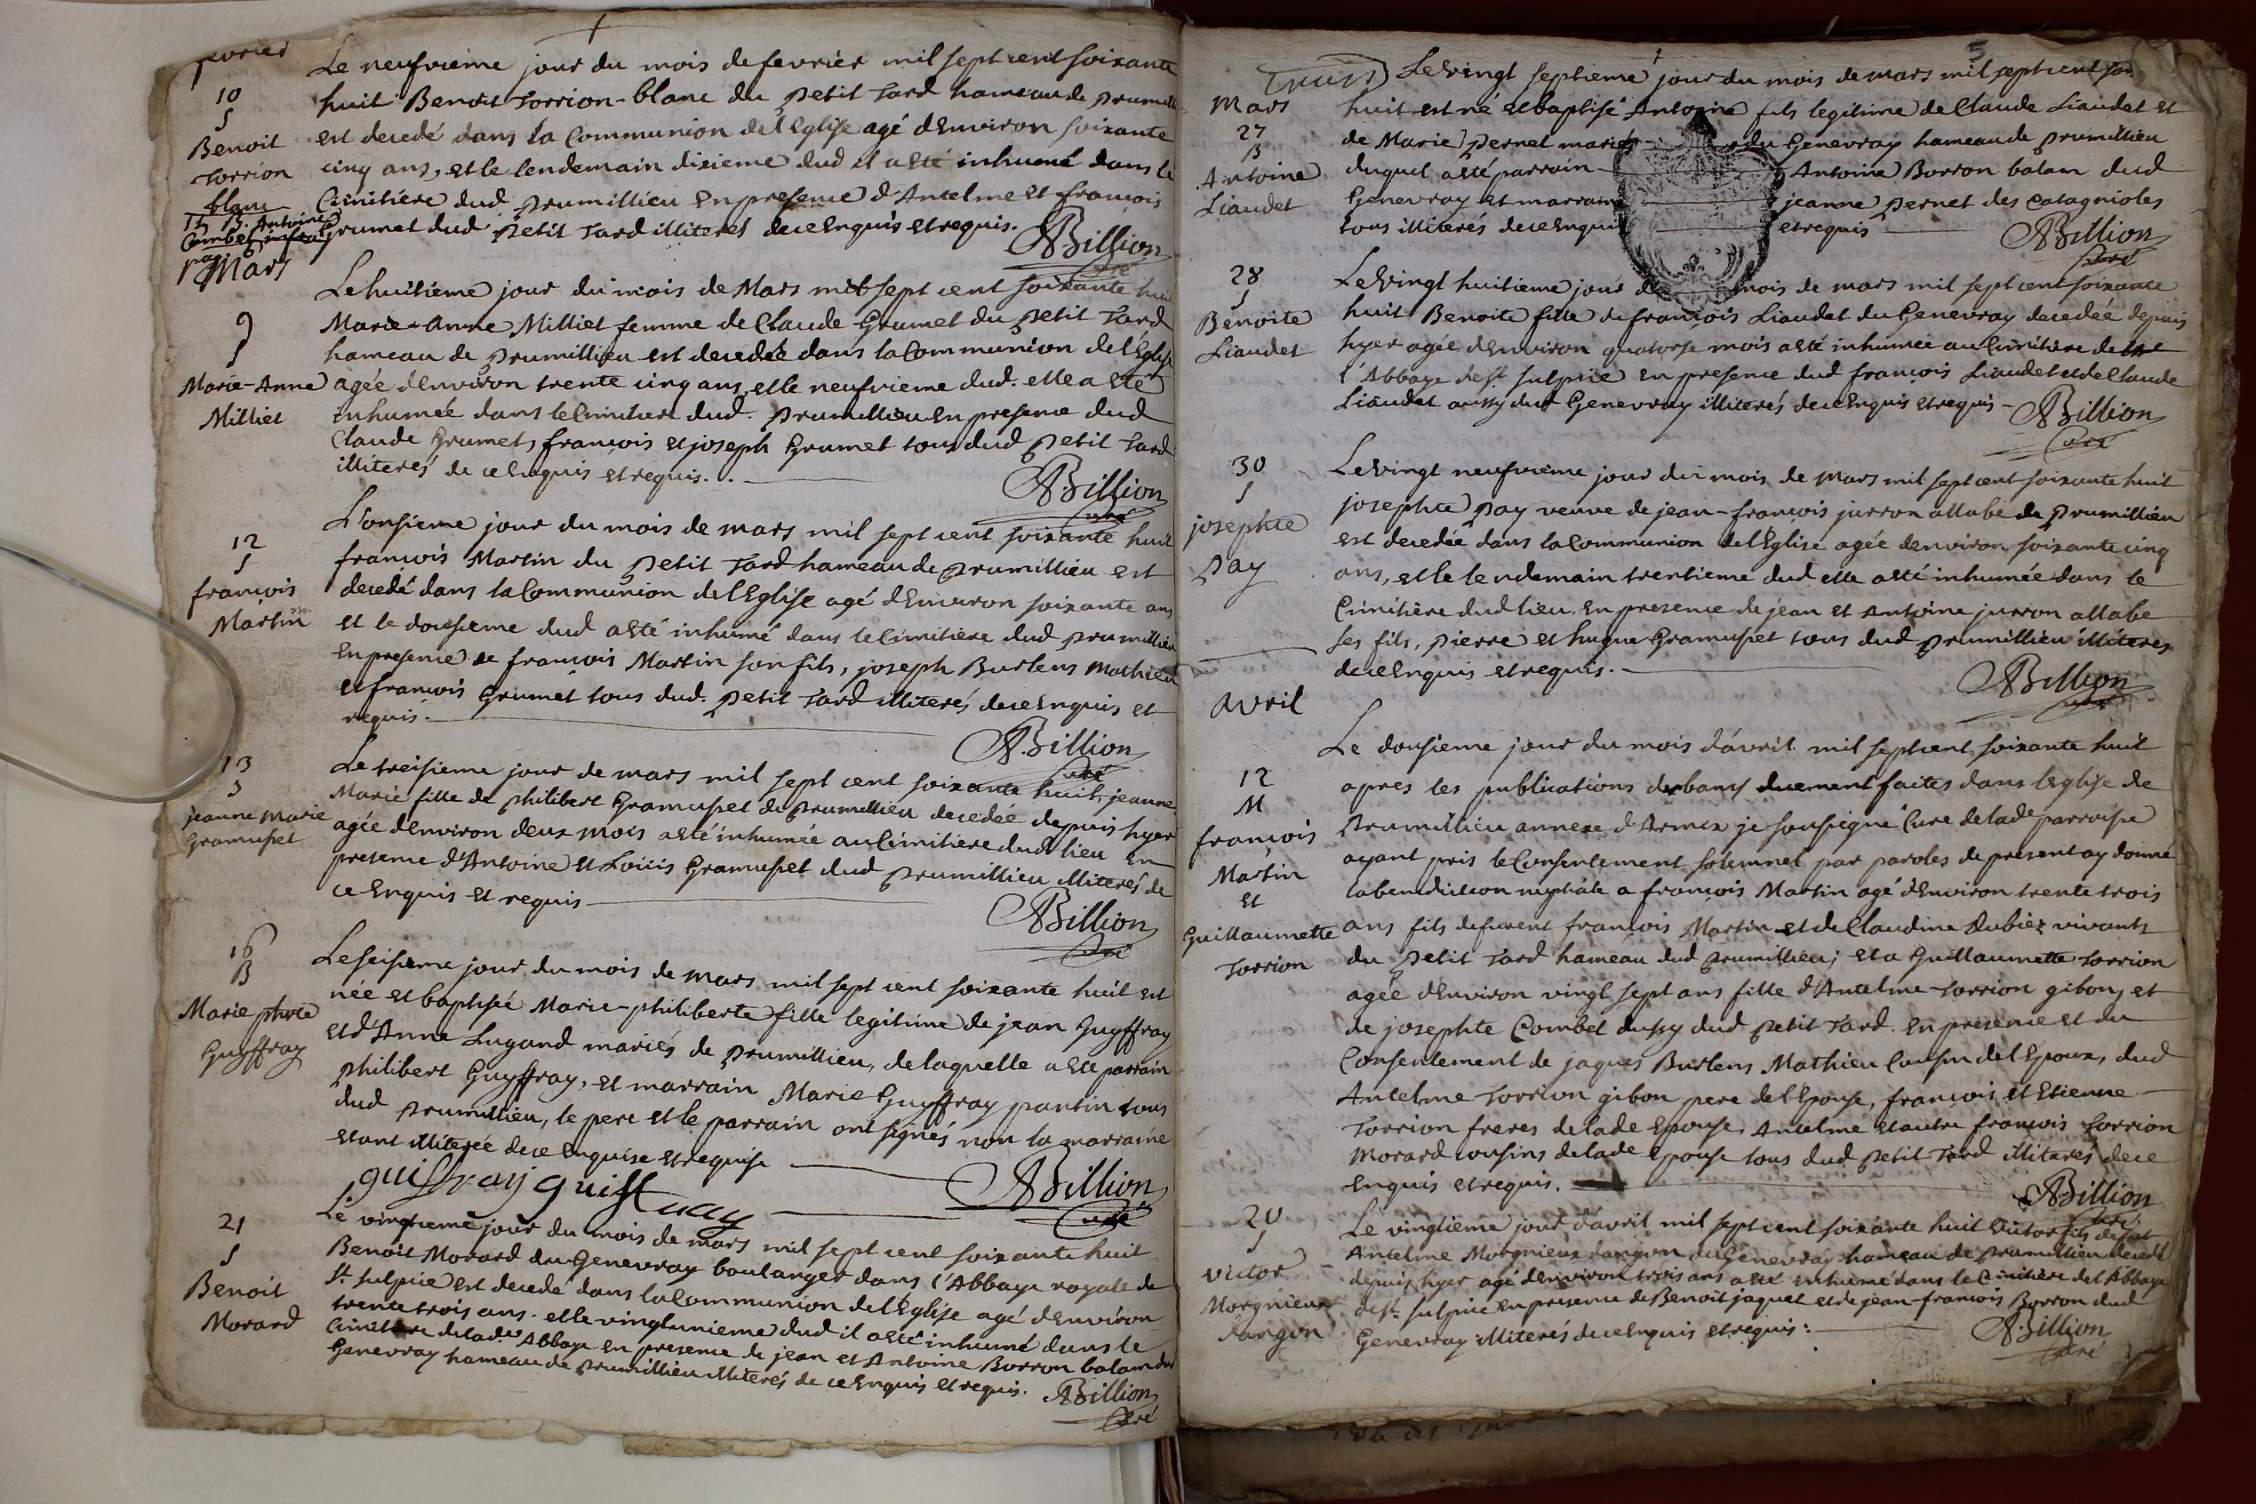 fevrier
Le neufvieme jour du mois de fevrier mil sept cent soixante
10
huit Benoit Torrion-blanc du petit Tard hameau de prumill
S
Benoit
est decedé dans la Communion de l'Eglise agé d'Environ soixante
Torrion
cinq ans, et le lendemain dixieme dud il a eté inhumé dans le
blanc
Cimitière dud prumillieu En presence d'Antelme et françois
B. Antoine
Combet infra
pag. 6
grumet dud petit Tard illiterés de ce Enquis et requis.
ABillion
curé
Mars
Le huitieme jour du mois de Mars mil sept cent soixante huit
9
S
Marie-Anne Milliet femme de Claude Grumet du petit Tard
hameau de prumillieu est decedée dans la Communion de l'Eglise
Marie-Anne
agée d'Environ trente cinq ans, et le neufvieme dud. elle a eté
Milliet
inhumée dans le Cimitiere dud. prumillieu en presence dud
Claude Grumet, françois et joseph Grumet tous dud petit Tard
illiterés de ce Enquis et requis.
ABillion
curé
L'onsieme jour du mois de mars mil sept cent soixante huit
12
S
françois Martin du petit Tard hameau de prumillieu est
françois
decedé dans la Communion de l'Eglise agé d'Environ soixante ans
Martin
et le dousieme dud a eté inhumé dans le Cimitière dud prumillieu
En presence de françois Martin son fils, joseph Burlens Mathieu
et françois Grumet tous dud. petit Tard illiterés de ce Enquis et
requis.
ABillion
curé
13
S
Le treisieme jour de mars mil sept cent soixante huit, jeanne
jeanne Marie
Marie fille de philibert Gramuset de prumillieu decedée depuis hyer
Gramuset
agée d'environ deux mois a eté inhumée au Cimitière dud lieu En
presence d'Antoine et Loüis Gramuset dud prumillieu illiterés de
ce Enquis et requis
ABillion
Curé
16
B
Le seisieme jour du mois de mars mil sept cent soixante huit est
née et baptisée Marie-philiberte fille legitime de jean Guyffray
Marie phte
et d'Anne Lugand mariés de prumillieu, de laquelle a eté parrain
Guyffray
philibert Guyffray, et marrain Marie Guyffray pantin tous
dud prumillieu, le pere et le parrain ont signés non la marraine
etant illiterée de ce Enquise et requise
guiffray guiffray
ABillion
Curé
21
S
Le vingtieme jour du mois de mars mil sept cent soixante huit
Benoit Morard du Genevray boulanger dans l'Abbaye royale de
Benoit
St. sulpice est decedé dans la Communion de l'Eglise agé d'Environ
Morard
trente trois ans. et le vingtunieme dud il a eté inhumé dans le
Cimitiere de lade. Abbaye en presence de jean et Antoine Borron balam dud
Genevray hameau de prumillieu illiterés de ce Enquis et requis.
ABillion
Curé
5
Le vingt septieme jour du mois de mars mil sept cent soix
Mars
huit est né et baptisé Antoine fils legitime de Claude Liaudet et
27
B
de Marie Pernet mariés du Genevray hameau de prumillieu
Antoine
duquel a eté parrain Antoine Borron balam dud
Liaudet
Genevray et marraine jeanne Pernet des Catagnioles
tous illiterés de ce Enquis et requis
ABillion
curé
28
S
Le vingt huitieme jour du mois de mars mil sept cent soixante
Benoite
huit Benoite fille de françois Liaudet du Genevray decedée depuis
Liaudet
hyer agée d'Environ quatorse mois a eté inhumée au Cimitière de
l'Abbaye de St. sulpice En presence dud françois Liaudet et de Claude
Liaudet aussy dud Genevray illiterés de ce Enquis et requis
ABillion
Curé
30
S
Le vingt neufvieme jour du mois de mars mil sept cent soixante huit
josephte
josephte Pay veuve de jean-françois jurron allabe de prumillieu
Pay
est decedée dans la Communion de l'Eglise agée d'environ soixante cinq
ans, et le lendemain trentieme dud elle a eté inhumée dans le
Cimitière dud lieu. En presence de jean et Antoine jurron allabe
ses fils, Pierre et hugue Gramuset tous dud prumillieu illiteres
de ce Enquis et requis.
ABillion
curé
Avril
Le dousieme jour du mois d'avril mil sept cent soixante huit
12
M
apres les publications de bans duement faites dans l'Eglise de
françois
Prumillieu annexe d'Armix je soussigné Curé de lade parroisse
Martin
ayant pris le Consentement solemnel par paroles de present ay donné
et
la benediction nuptiale a françois Martin agé d'Environ trente trois
Guillaumette
ans fils de furent françois Martin et de Claudine Aubiez vivants
Torrion
du petit Tard hameau dud prumillieu; et a Guillaumette Torrion
agée d'Environ vingt sept ans fille d'Antelme Torrion gibon, et
de josephte Combet aussy dud petit Tard. En presence et du
Consentement de jaques Burlens Mathieu Cousin de l'Epoux, dud
Antelme Torrion gibon pere de l'Epouse, françois et Etienne
Torrion freres de lade Epouse, Antelme et autre françois Torrion
Morard cousins de lade Epouse tous dud petit Tard illiterés de ce
Enquis et requis.
ABillion
curé
20
S
Le vingtieme jour d'avril mil sept cent soixante huit victor fils de fut
Antelme Morgnieux dangon du Genevray hameau de prumillieu decedé
victor
depuis hyer agé d'Environ trois ans a eté inhumé dans le Cimitière de l'Abbaye
Morgnieux
de St. sulpice En presence de Benoit jaquet et de jean-françois Borron dud
dangon
Genevray illiterés de ce Enquis et requis.
ABillion
Curé